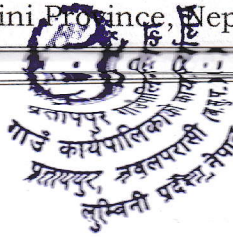 ini Province, Nep
प्रतापपुर गाउँपालिका
गाउँ कार्यपालिकाको कार्यालय
प्रतापपुर, नवलपरासी (ब.सु.प.)
लुम्बिनी प्रदेश, नेपाल